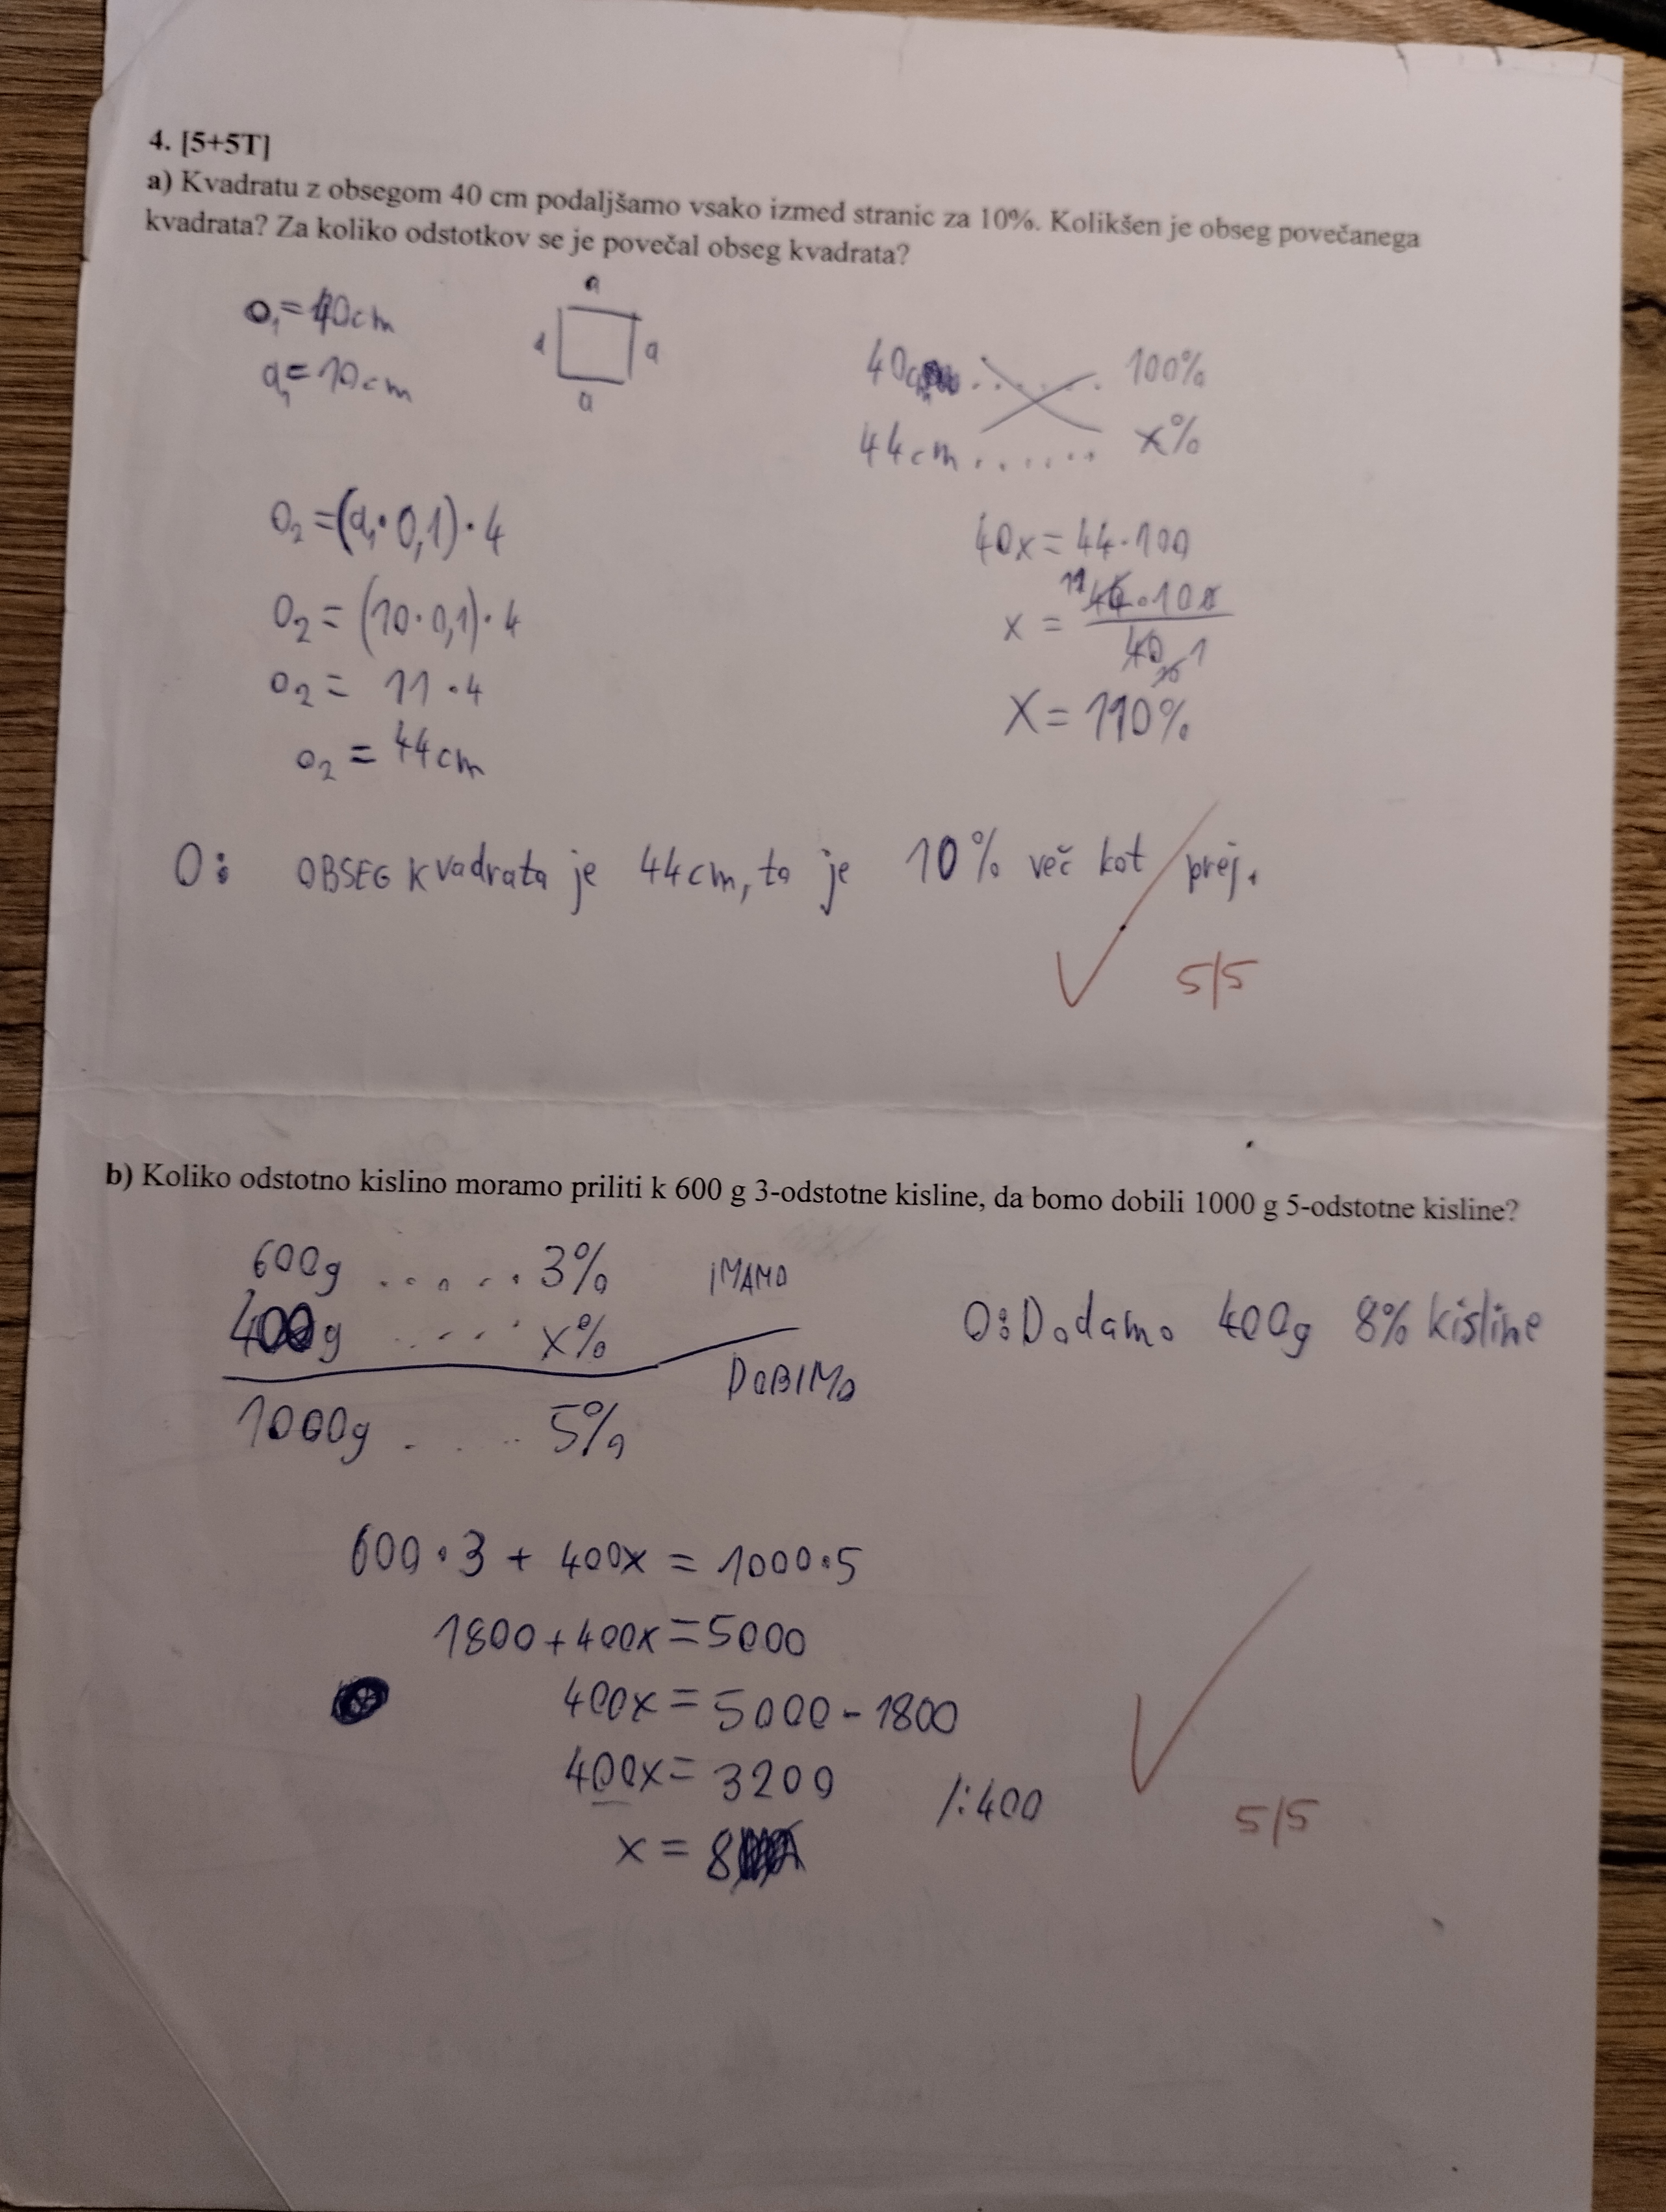 4. [5+5T]
a) Kvadratu z obsegom 40 cm podaljšamo vsako izmed stranic za 10%. Kolikšen je obseg povečanega
kvadrata? Za koliko odstotkov se je povečal obseg kvadrata?
o₁ = 40cm
a₁ = 10cm
a
a
a
a
40cm ...... 100%
44cm ...... x%
o₂ = (a₁ · 0,1) · 4
o₂ = (10 · 0,1) · 4
o₂ = 11 · 4
o₂ = 44cm
40x = 44 · 100
x = 44 · 100 / 40
11
10
1
X = 110%
O: OBSEG kvadrata je 44cm, to je 10% več kot prej.
5/5
b) Koliko odstotno kislino moramo priliti k 600 g 3-odstotne kisline, da bomo dobili 1000 g 5-odstotne kisline?
600g ...... 3% IMAMO
400g ..... x%
1000g .... 5% DOBIMO
O: Dodamo 400g 8% kisline
600 · 3 + 400x = 1000 · 5
1800 + 400x = 5000
400x = 5000 - 1800
400x = 3200 /:400
x = 8
5/5